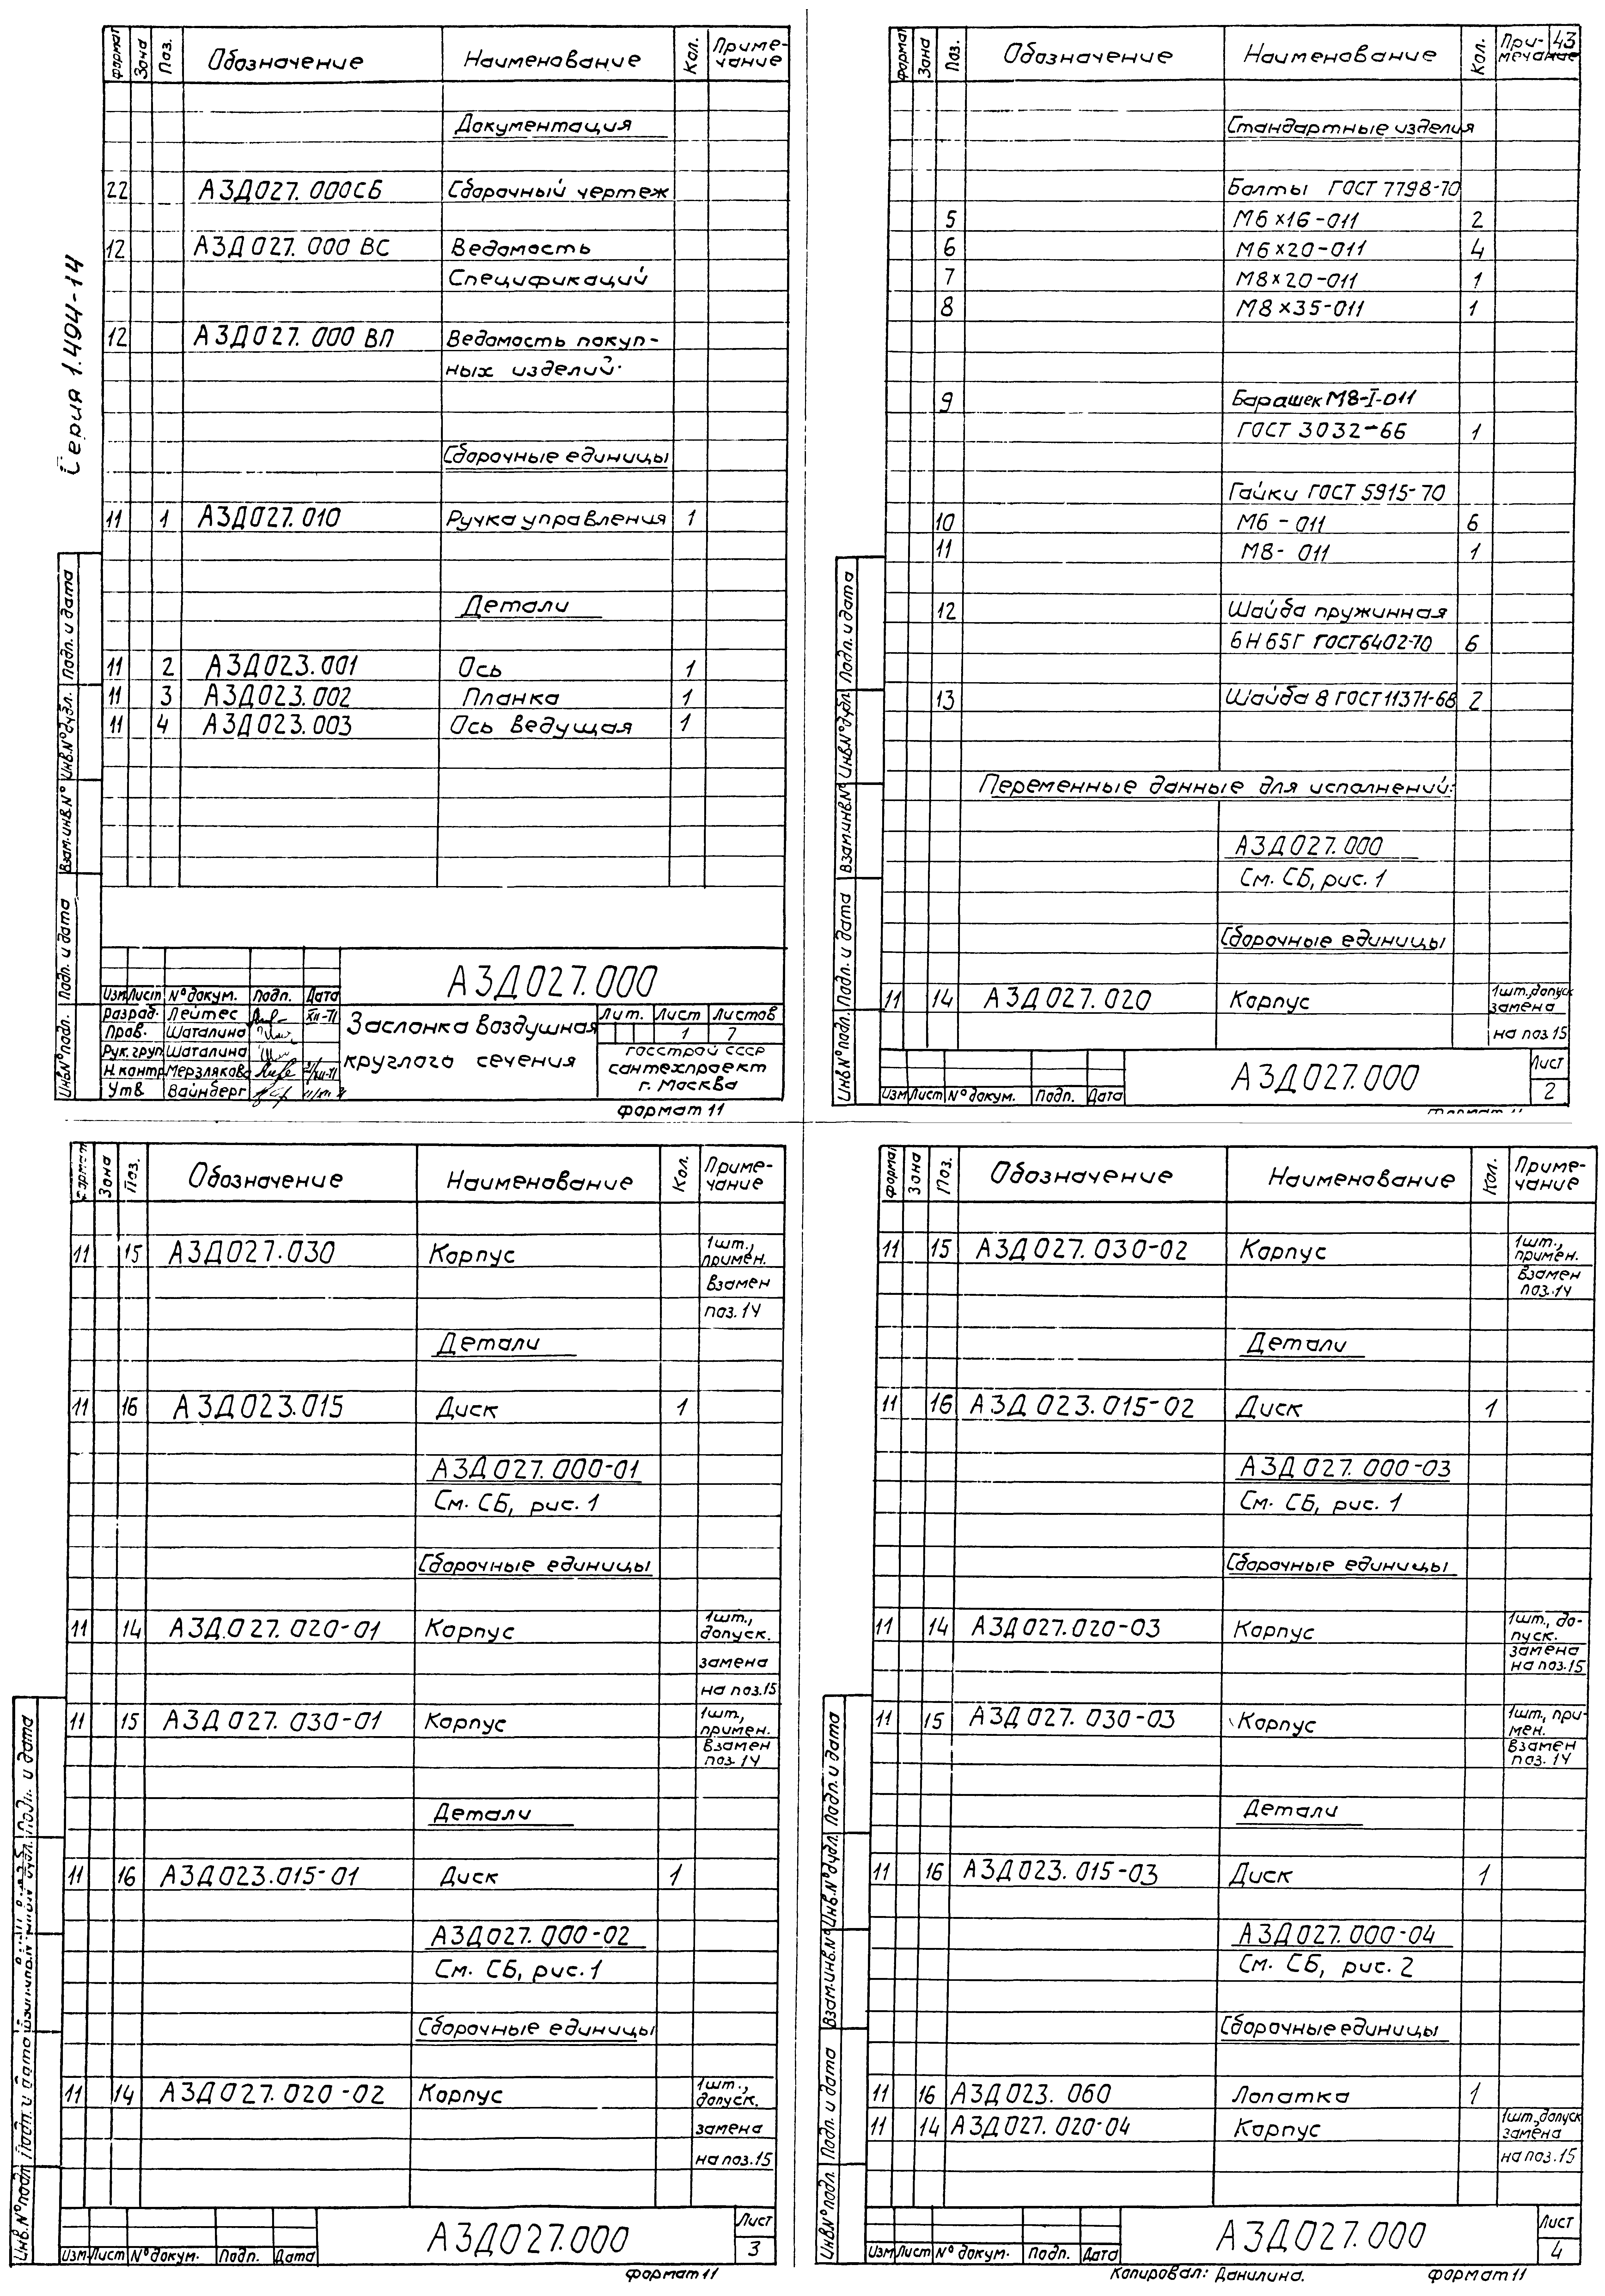 Серия 1.494-14
Формат Зона Поз. Обозначение Наименование Кол. Приме-
чание
Документация
22 АЗД027.000СБ Сборочный чертеж
12 АЗД027.000 ВС Ведомость
Спецификаций
12 АЗД027.000 ВП Ведомость покуп-
ных изделий.
Сборочные единицы
11 1 АЗД027.010 Ручка управления 1
Детали
11 2 АЗД023.001 Ось 1
11 3 АЗД023.002 Планка 1
11 4 АЗД023.003 Ось ведущая 1
Инв.№подл. Подп. и дата Взам.инв.№ Инв.№дубл. Подп. и дата
АЗД027.000
Изм Лист №докум. Подп. Дата
Разраб. Лейтес XII-71
Пров. Шаталина
Рук.груп Шаталина
Н.контр Мерзлякова
Утв Вайнберг
Заслонка воздушная
круглого сечения
Лит. Лист Листов
1 7
Госстрой СССР
Сантехпроект
г. Москва
Формат 11
Формат Зона Поз. Обозначение Наименование Кол. При- 43
мечание
Стандартные изделия
Болты ГОСТ 7798-70
5 М6×16-011 2
6 М6×20-011 4
7 М8×20-011 1
8 М8×35-011 1
9 Барашек М8-I-011
ГОСТ 3032-66 1
Гайки ГОСТ 5915-70
10 М6-011 6
11 М8-011 1
12 Шайба пружинная
6Н 65Г ГОСТ6402-70 6
13 Шайба 8 ГОСТ11371-68 2
Переменные данные для исполнений:
АЗД027.000
См. СБ, рис. 1
Сборочные единицы
11 14 АЗД027.020 Корпус 1шт.,допуск
замена
на поз.15
Инв.№подл. Подп. и дата Взам.инв.№ Инв.№дубл. Подп. и дата
Изм Лист №докум. Подп. Дата
АЗД027.000
Лист
2
Формат 11
Формат Зона Поз. Обозначение Наименование Кол. Приме-
чание
11 15 АЗД027.030 Корпус 1шт.,
примен.
взамен
поз.14
Детали
11 16 АЗД023.015 Диск 1
АЗД027.000-01
См. СБ, рис. 1
Сборочные единицы
11 14 АЗД.027.020-01 Корпус 1шт.,
допуск.
замена
на поз.15
11 15 АЗД027.030-01 Корпус 1шт,
примен.
взамен
поз.14
Детали
11 16 АЗД023.015-01 Диск 1
АЗД027.000-02
См. СБ, рис.1
Сборочные единицы
11 14 АЗД027.020-02 Корпус 1шт.,
допуск.
замена
на поз.15
Инв.№подл Подп. и дата Взам.инв.№ Инв.№дубл. Подп. и дата
Изм. Лист №докум. Подп. Дата
АЗД027.000
Лист
3
Формат 11
Формат Зона Поз. Обозначение Наименование Кол. Приме-
чание
11 15 АЗД027.030-02 Корпус 1шт.,
примен.
взамен
поз.14
Детали
11 16 АЗД023.015-02 Диск 1
АЗД027.000-03
См. СБ, рис. 1
Сборочные единицы
11 14 АЗД027.020-03 Корпус 1шт., до-
пуск.
замена
на поз.15
11 15 АЗД027.030-03 Корпус 1шт, при-
мен.
взамен
поз.14
Детали
11 16 АЗД023.015-03 Диск 1
АЗД027.000-04
См. СБ, рис. 2
Сборочные единицы
11 16 АЗД023.060 Лопатка 1
11 14 АЗД027.020-04 Корпус 1шт,допуск
замена
на поз.15
Инв.№подл. Подп. и дата Взам.инв.№ Инв.№дубл. Подп. и дата
Изм Лист №докум. Подп. Дата
АЗД027.000
Лист
4
Копировал: Данилина. Формат 11